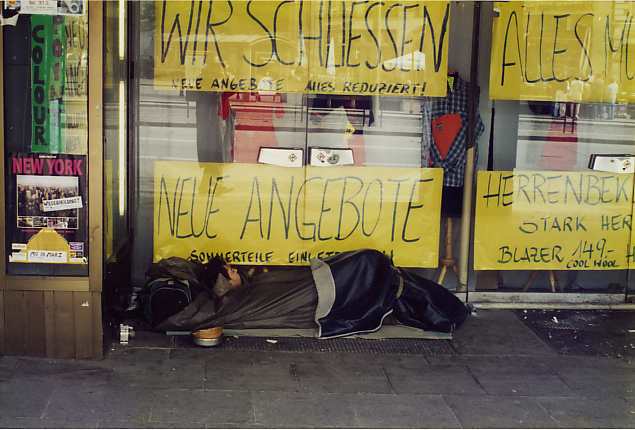 WIR SCHLIESSEN
NEUE ANGEBOTE ALLES REDUZIERT!
ALLES
COLOUR
NEW YORK
WIEDERHOLUNG!
NEUE ANGEBOTE
SOMMERTEILE
HERRENBEK
STARK HER
BLAZER 149.-
COOL WOOL